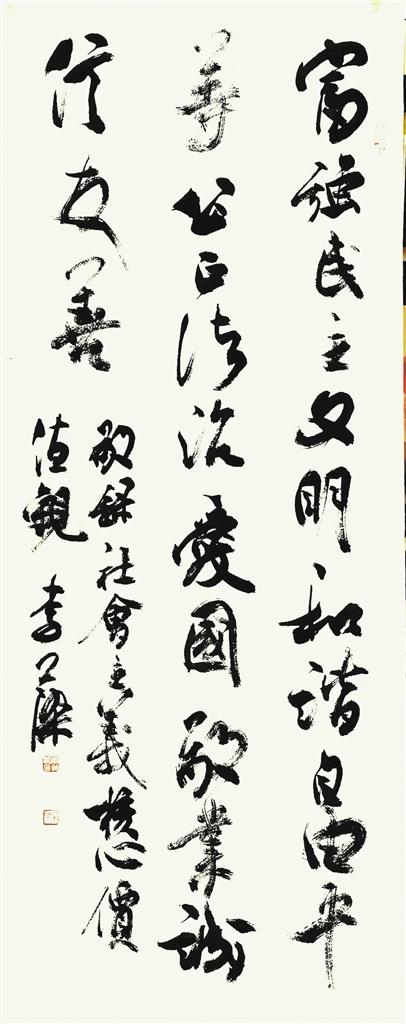 富強民主文明和谐自由平
等公正法治愛國敬業誠
信友善
敬録社會主義核心價
值觀 李